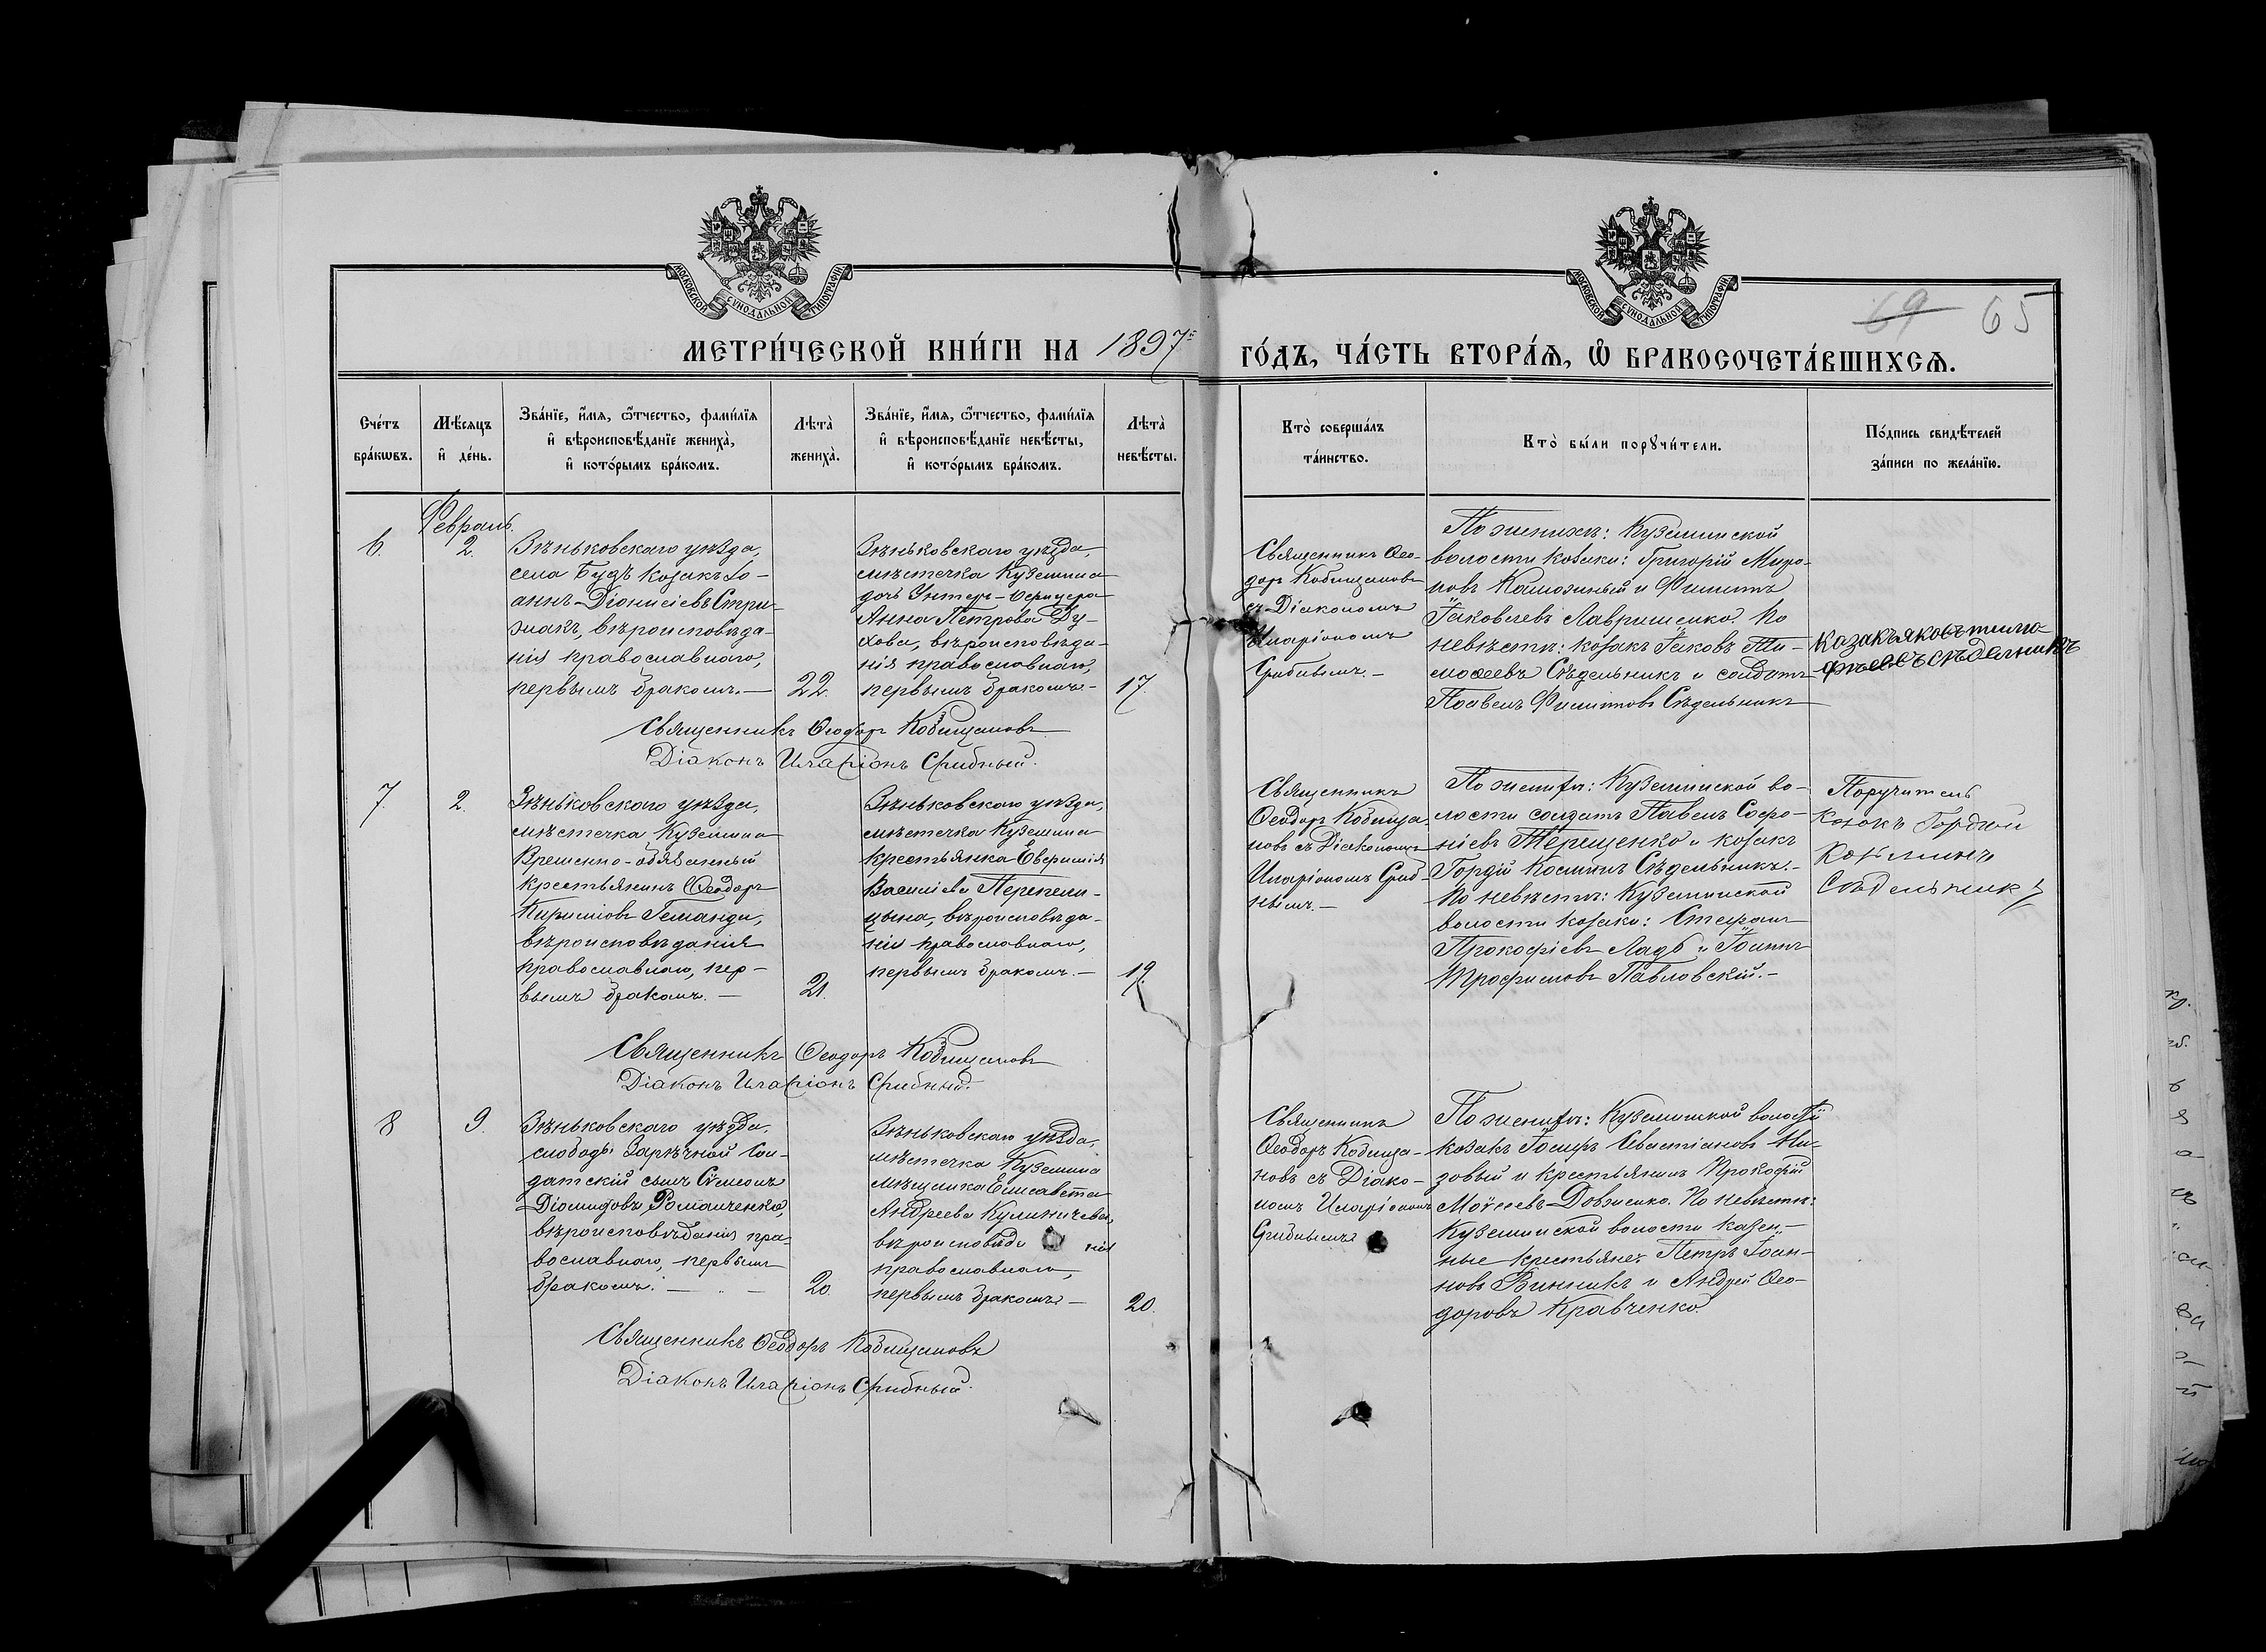 МОСКОВСКОЙ СѴНОДАЛЬНОЙ ТИПОГРАФІИ
МОСКОВСКОЙ СѴНОДАЛЬНОЙ ТИПОГРАФІИ
69 65
МЕТРИ́ЧЕСКОЙ КНИ́ГИ НА 1897
ГО́ДЪ, ЧА́СТЬ ВТОРА́Ѧ, Ѡ҆ БРАКОСОЧЕТА́ВШИХСѦ.
Сче́тъ
бра́кѡвъ.
Мѣ́сѧцъ
и҆ де́нь.
Зва́нїе, и҆́мѧ, ѻ҆́тчество, фами́лїѧ
и҆ вѣроисповѣ́данїе жениха̀,
и҆ кото́рымъ бра́комъ.
Лѣта̀
жениха̀.
Зва́нїе, и҆́мѧ, ѻ҆́тчество, фами́лїѧ
и҆ вѣроисповѣ́данїе невѣ́сты,
и҆ кото́рымъ бра́комъ.
Лѣта̀
невѣ́сты.
Кто̀ соверша́лъ
та́инство.
Кто̀ бы́ли порꙋчи́тели.
По́дпись свидѣ́телей
за́писи по жела́нїю.
6.
Февраль.
2.
Зѣньковскаго уѣзда,
села Будъ козакъ Іо-
аннъ Діонисіевъ Стри-
жакъ, вѣроисповѣда-
нія православнаго,
первымъ бракомъ.—
22.
Зѣньковскаго уѣзда,
мѣстечка Куземина
дочь Унтеръ-Офицера
Анна Петрова Ду-
хова, вѣроисповѣда-
нія православнаго,
первымъ бракомъ.—
17.
Священникъ Ѳео-
доръ Кобищановъ
съ Діакономъ
Иларіономъ
Срибнымъ.—
По женихѣ: Куземинской
волости козаки: Григорій Миро-
новъ Камозный и Филиппъ
Іаковлевъ Лавриненко. По
невѣстѣ: козакъ Іаковъ Ти-
моѳеевъ Сѣдельникъ и солдатъ
Павелъ Филипповъ Сѣдельникъ
козакъ яковъ тимо-
фѣевъ сѣделникъ
Священникъ Ѳеодоръ Кобищановъ
Діаконъ Иларіонъ Срибный.
7.
2.
Зѣньковскаго уѣзда,
мѣстечка Куземина
Временно-обязанный
крестьянинъ Ѳеодоръ
Кириловъ Геманда,
вѣроисповѣданія
православнаго, пер-
вымъ бракомъ.—
21.
Зѣньковскаго уѣзда,
мѣстечка Куземина
крестьянка Евфимія
Василіева Перепели-
цына, вѣроисповѣда-
нія православнаго,
первымъ бракомъ.—
19.
Священникъ
Ѳеодоръ Кобища-
новъ съ Діакономъ
Иларіономъ Сриб-
нымъ.—
По женихѣ: Куземинской во-
лости солдатъ Павелъ Софро-
ніевъ Терещенко и козакъ
Гордій Косминъ Сѣдельникъ.—
По невѣстѣ: Куземинской
волости козаки: Стефанъ
Прокофіевъ Ладъ и Іоаннъ
Трофимовъ Павловскій.—
Поручитель
Козакъ Гордей
Сѣдельникъ
Священникъ Ѳеодоръ Кобищановъ
Діаконъ Иларіонъ Срибный.
8
9.
Зѣньковскаго уѣзда,
слободы Зарѣчной Сол-
датскій сынъ Сѵмеонъ
Діомидовъ Романченко,
вѣроисповѣданія пра-
вославнаго, первымъ
бракомъ.—
20.
Зѣньковскаго уѣзда,
мѣстечка Куземина
мѣщанка Елисавета
Андреева Кулиничева,
вѣроисповѣда нія
православнаго,
первымъ бракомъ—
20.
Священникъ
Ѳеодоръ Кобища-
новъ съ Діако-
номъ Иларіономъ
Срибнымъ
По женихѣ: Куземинской волости
козакъ Іосифъ Севастіановъ Ни-
зовый и крестьянинъ Прокофій
Моѵсеевъ Довженко. По невѣстѣ:
Куземинской волости казен-
ные крестьяне: Петръ Іоан-
новъ Винникъ и Андрей Ѳео-
доровъ Кравченко.
Священникъ Ѳеодоръ Кобищановъ
Діаконъ Иларіонъ Срибный.